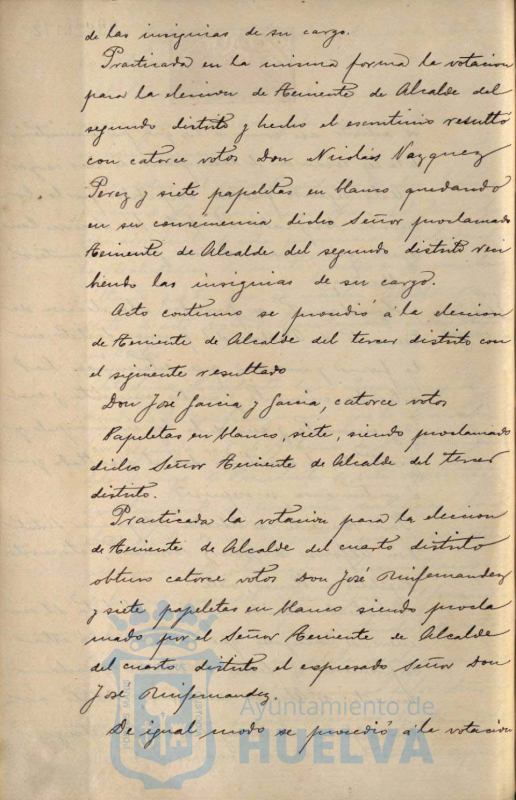 de las insignias de su cargo.
Practicada en la misma forma la votacion
para la eleccion de Teniente de Alcalde del
segundo distrito y hecho el escrutinio resultó
con catorce votos Don Nicolás Vazquez
Perez y siete papeletas en blanco quedando
en su consecuencia dicho Señor proclamado
Teniente de Alcalde del segundo distrito reci
biendo las insignias de su cargo.
Acto contínuo se procedió á la eleccion
de Teniente de Alcalde del tercer distrito con
el siguiente resultado
Don José Garcia y Garcia, catorce votos
Papeletas en blanco, siete, siendo proclamado
dicho Señor Teniente de Alcalde del tercer
distrito.
Practicada la votacion para la eleccion
de Teniente de Alcalde del cuarto distrito
obtuvo catorce votos Don José Rinfernandez
y siete papeletas en blanco siendo procla
mado por el Señor Teniente de Alcalde
del cuarto distrito el espresado Señor Don
José Rinfernandez.
De igual modo se procedió á la votacion
Ayuntamiento de
HUELVA